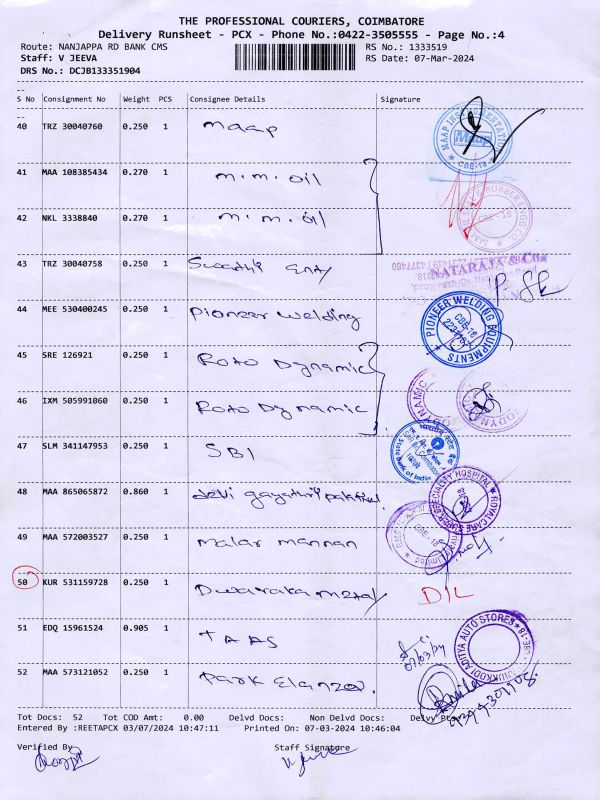 THE PROFESSIONAL COURIERS, COIMBATORE
Delivery Runsheet - PCX - Phone No.:0422-3505555 - Page No.:4
Route: NANJAPPA RD BANK CMS RS No.: 1333519
Staff: V JEEVA RS Date: 07-Mar-2024
DRS No.: DCJB133351904
S No Consignment No Weight PCS Consignee Details Signature
40 TRZ 30040760 0.250 1 Maap
41 MAA 108385434 0.270 1 M.M. Oil
42 NKL 3338840 0.270 1 M.M. Oil
43 TRZ 30040758 0.250 1 Swathi
NATARAJA & Co
44 MEE 530400245 0.250 1 Pioneer Welding
PIONEER WELDING EQUIPMENTS
CBE-18
45 SRE 126921 0.250 1 Roto Dynamic
46 IXM 505991060 0.250 1 Roto Dynamic
47 SLM 341147953 0.250 1 SBI
State Bank of India
48 MAA 865065872 0.860 1 Devi gayathri
SPECIALITY HOSPITAL
49 MAA 572003527 0.250 1 Malar Mannan
50 KUR 531159728 0.250 1 Dwaraka Metal D/L
51 EDQ 15961524 0.905 1 TAAS
ADITYA AUTO STORES
52 MAA 573121052 0.250 1 Park Elanza
Tot Docs: 52 Tot COD Amt: 0.00 Delvd Docs: Non Delvd Docs: Delvy
Entered By :REETAPCX 03/07/2024 10:47:11 Printed On: 07-03-2024 10:46:04
Verified By Staff Signature